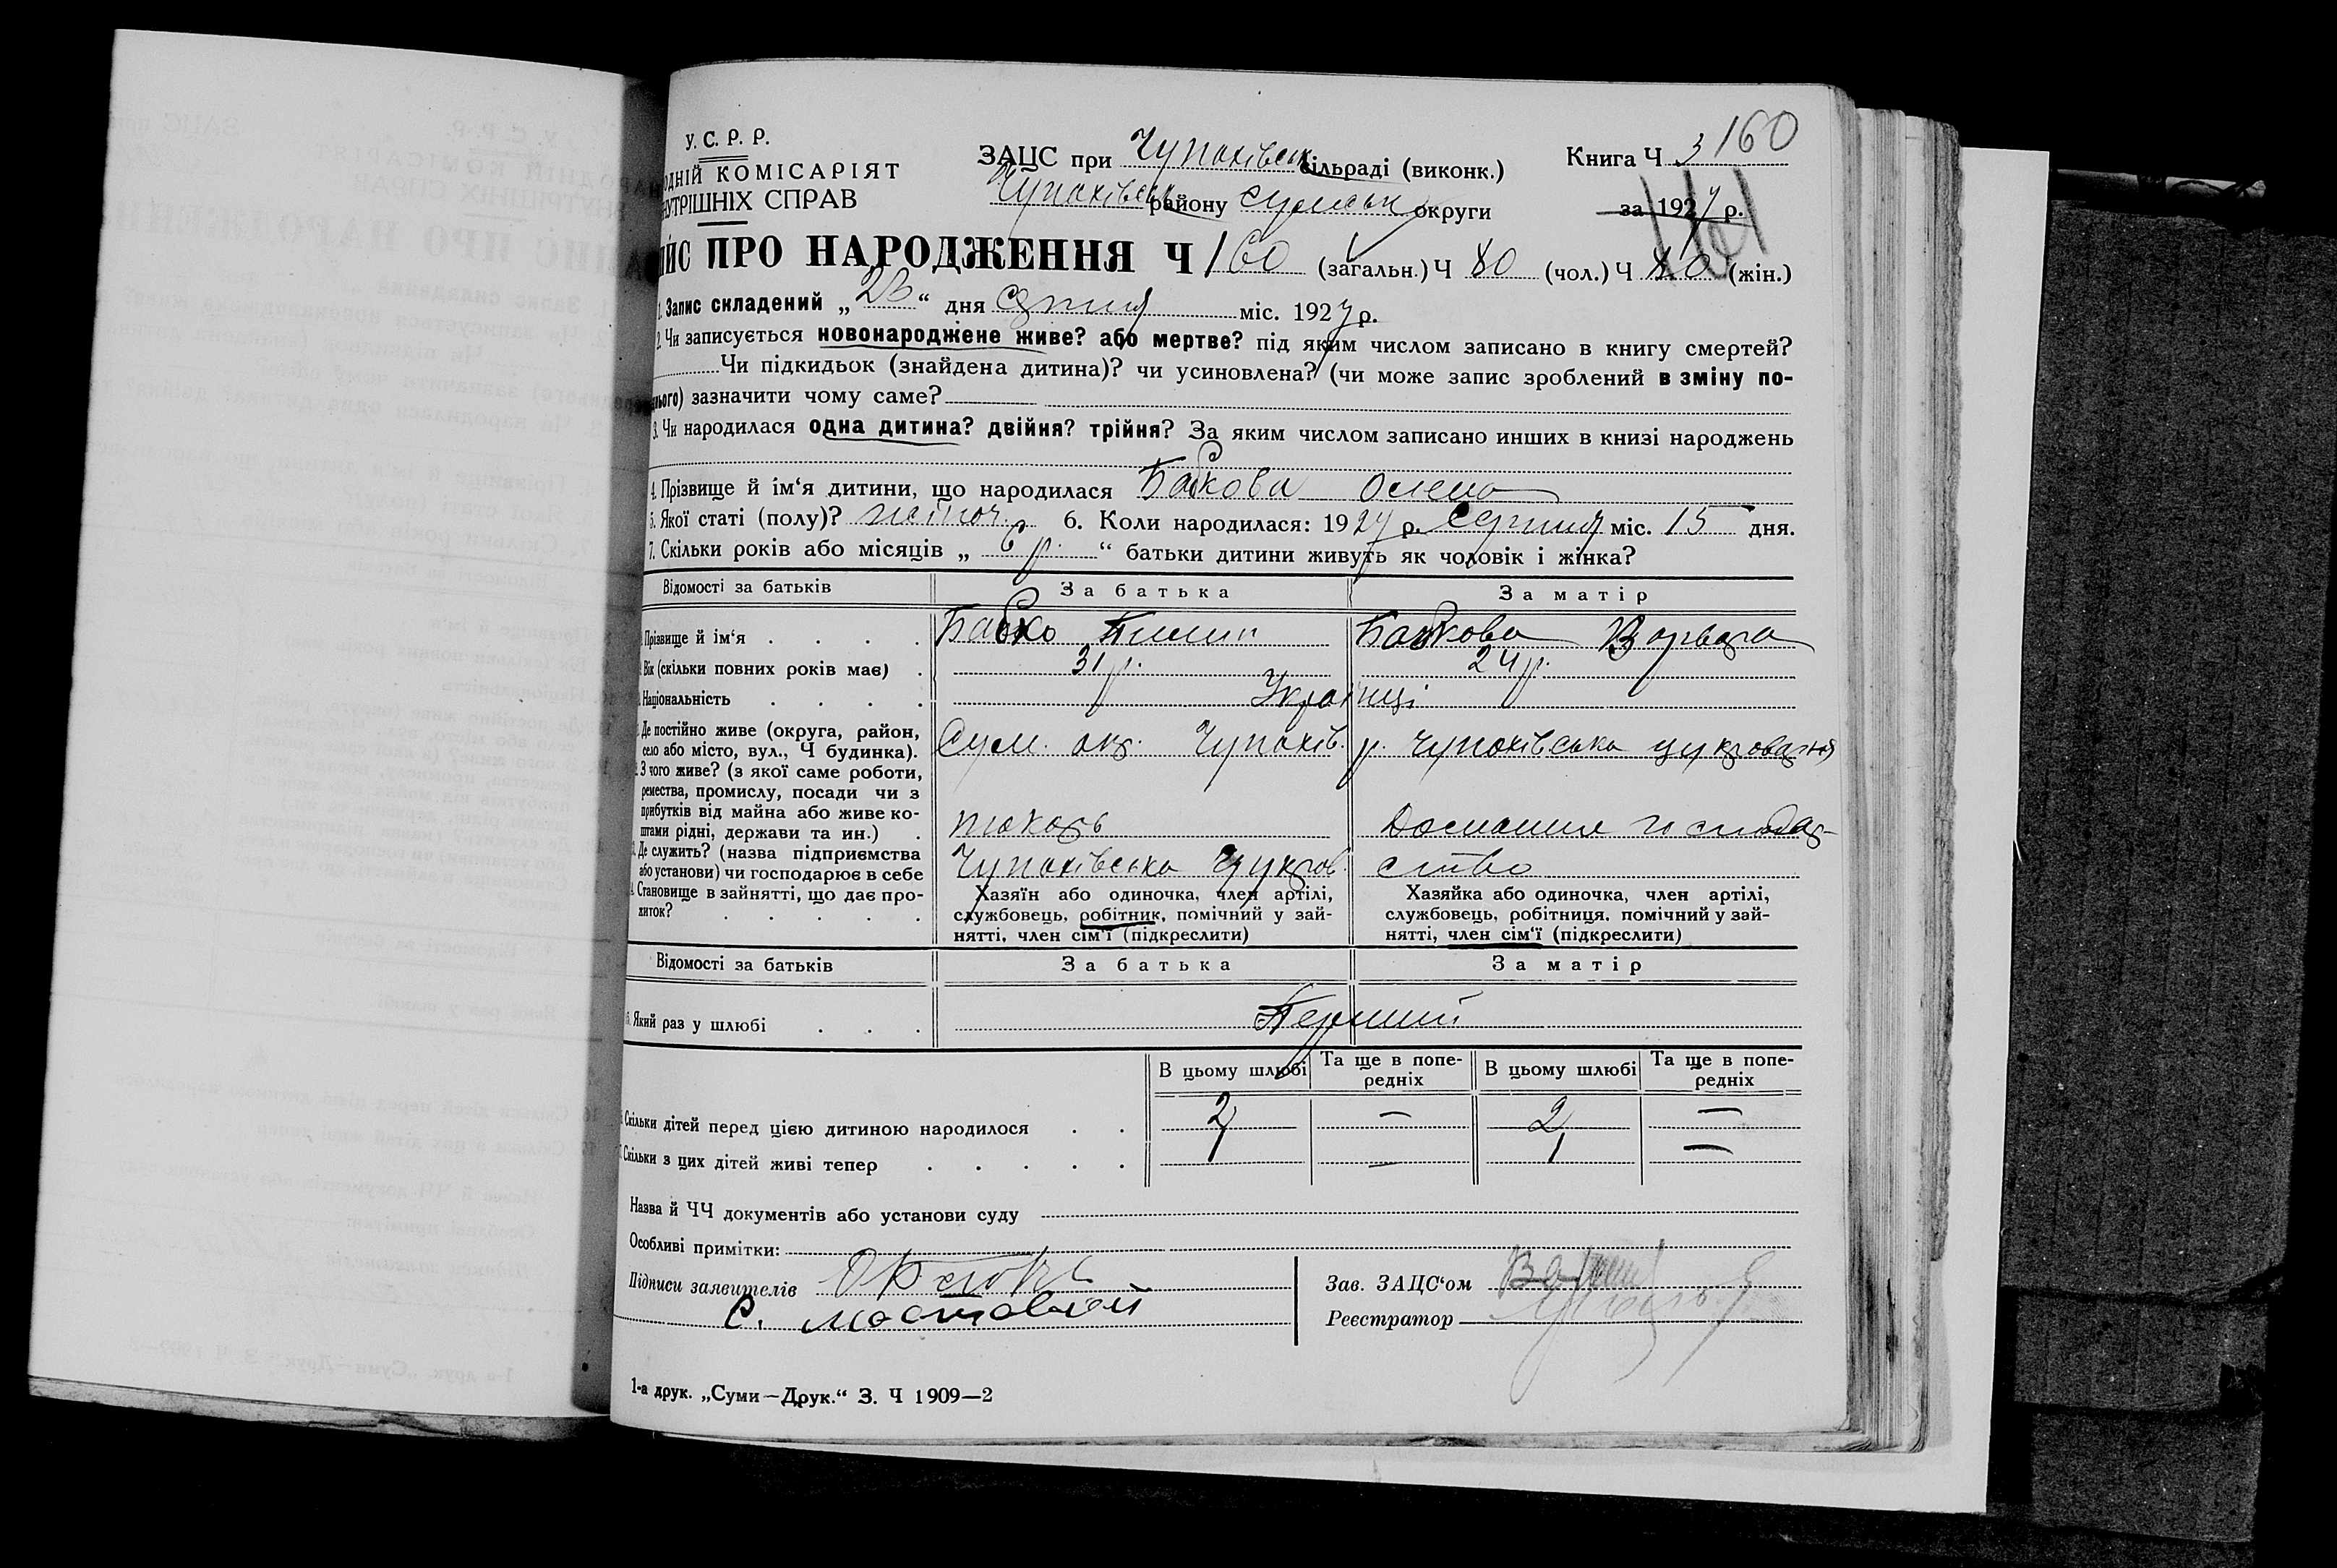 160
У. С. Р. Р.
ОДНІЙ КОМІСАРІЯТ
НУТРІШНІХ СПРАВ
ЗАЦС при Чупахівськ сільраді (виконк.)
Чупахівськ району Сумськ округи
Книга Ч 3
за 1927 р.
ПИС ПРО НАРОДЖЕННЯ Ч 160 (загальн.) Ч 80 (чол.) Ч 80 (жін.)
1. Запис складений „23“ дня серпня міс. 1927 р.
2. Чи записується новонароджене живе? або мертве? під яким числом записано в книгу смертей?
Чи підкидьок (знайдена дитина)? чи усиновлена? (чи може запис зроблений в зміну по-
нього) зазначити чому саме?
3. Чи народилася одна дитина? двійня? трійня? За яким числом записано инших в книзі народжень
4. Прізвище й ім‘я дитини, що народилася Бабкова Олена
5. Якої статі (полу)? жіноч. 6. Коли народилася: 1927 р. Серпня міс. 15 дня.
7. Скільки років або місяців „ 6 р. “ батьки дитини живуть як чоловік і жінка?
Відомості за батьків За батька За матір
Прізвище й ім‘я . . . . Бабко Пилип Бабкова Варвара
Вік (скільки повних років має) . 31 р. 24 р.
Національність . . . . Українці
Де постійно живе (округа, район, село або місто, вул., Ч будинка). Сум. окр. Чупахів. р. Чупахівська цукроварня
З чого живе? (з якої саме роботи,
ремества, промислу, посади чи з
прибутків від майна або живе ко-
штами рідні, держави та ин.) . токарь Домашнє господар-
Де служить? (назва підприємства
або установи) чи господарює в себе Чупахівська цукров. ство
Становище в зайнятті, що дає про-
житок? . . . . .
Хазяїн або одиночка, член артілі,
службовець, робітник, помічний у зай-
нятті, член сім‘ї (підкреслити)
Хазяйка або одиночка, член артілі,
службовець, робітниця, помічний у зай-
нятті, член сім‘ї (підкреслити)
Відомості за батьків За батька За матір
Який раз у шлюбі . . . Перший
В цьому шлюбі Та ще в попе-редніх В цьому шлюбі Та ще в попе-редніх
Скільки дітей перед цією дитиною народилося . . 2 — 2 —
Скільки з цих дітей живі тепер . . . . . 1 — 1 —
Назва й ЧЧ документів або установи суду
Особливі примітки:
Підписи заявителів
С. Мостовий
Зав. ЗАЦС‘ом
Реєстратор
1-а друк. „Суми—Друк.“ З. Ч 1909—2